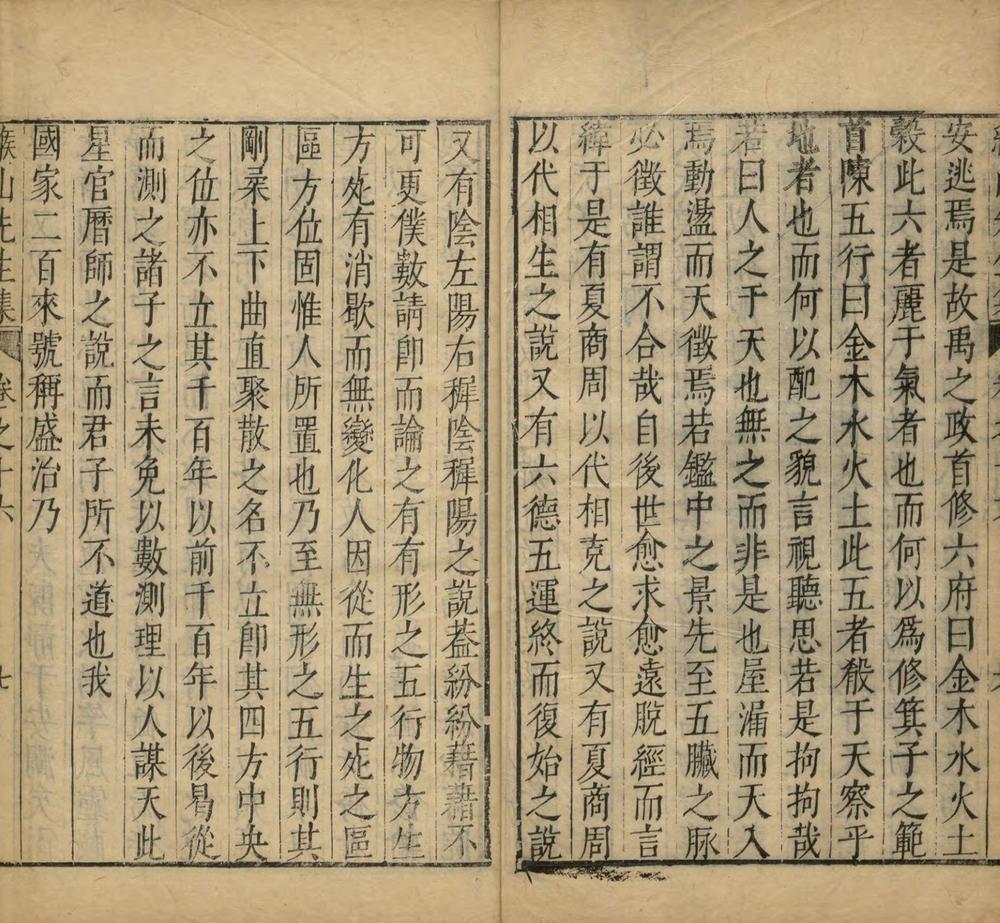 安逃焉是故禹之政首修六府曰金木水火土
穀此六者麗于氣者也而何以爲修箕子之範
首陳五行曰金木水火土此五者殽于天察乎
地者也而何以配之貌言視聽思若是拘拘哉
若曰人之于天也無之而非是也屋漏而天入
焉動盪而天徵焉若鑑中之景先至五臟之脉
必徵誰謂不合哉自後世愈求愈遠脫經而言
緯于是有夏商周以代相克之說又有夏商周
以代相生之說又有六德五運終而復始之說
又有陰左陽右穉陰穉陽之說葢紛紛藉藉不
可更僕數請卽而論之有有形之五行物方生
方𣦸有消歇而無變化人因從而生之𣦸之區
區方位固惟人所置也乃至無形之五行則其
剛柔上下曲直聚散之名不立卽其四方中央
之位亦不立其千百年以前千百年以後曷從
而測之諸子之言未免以數測理以人謀天此
星官曆師之說而君子所不道也我
國家二百來號稱盛治乃
山先生集 卷之十六 七